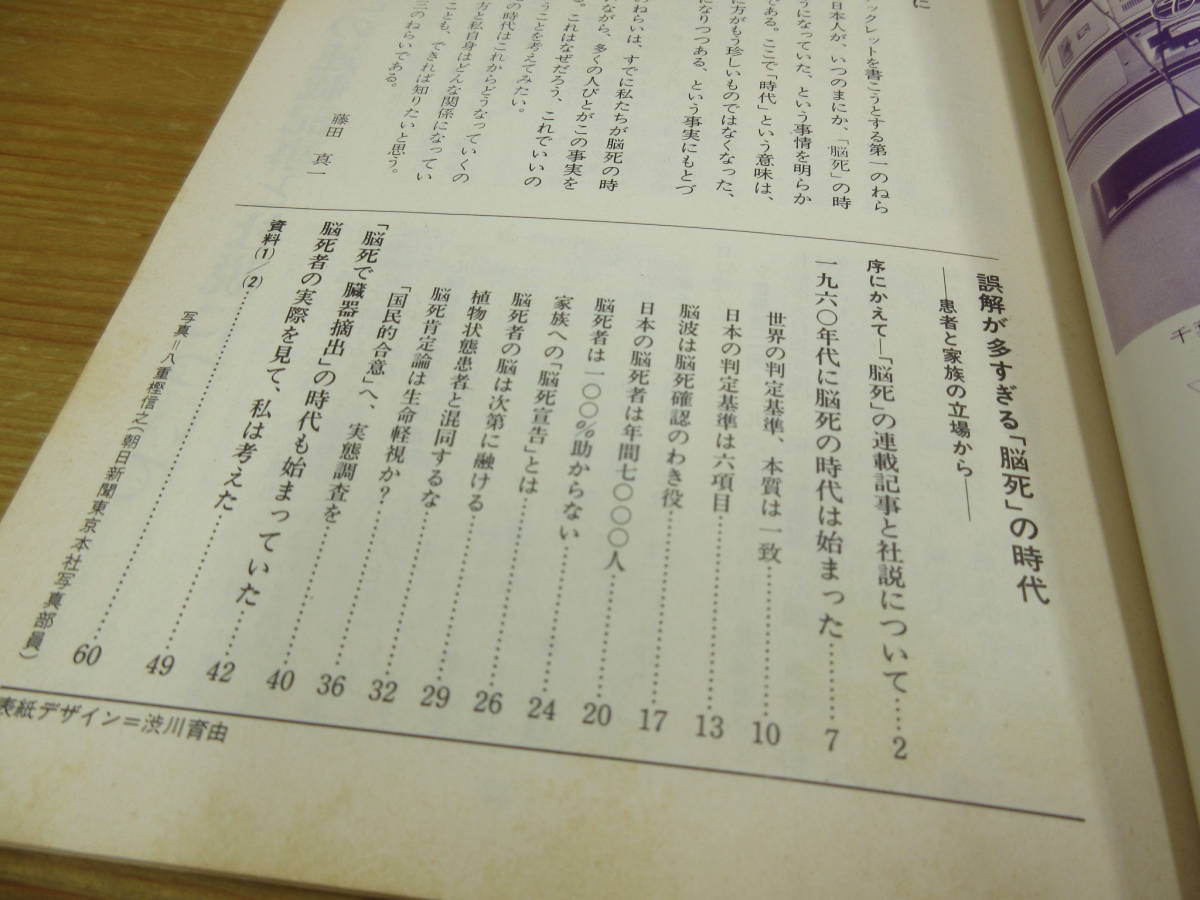 に
ックレットを書こうとする第一のねら
日本人が、いつのまにか、「脳死」の時
うになっていた、という事情を明らか
である。ここで「時代」という意味は、
に方がもう珍しいものではなくなった、
になりつつある、という事実にもとづ
のねらいは、すでに私たちが脳死の時
ながら、多くの人びとがこの事実を
る。これはなぜだろう、これでいいの
うことを考えてみたい。
の時代はこれからどうなっていくの
方と私自身はどんな関係になってい
ことも、できれば知りたいと思う。
三のねらいである。
藤田 真一
誤解が多すぎる「脳死」の時代
――患者と家族の立場から――
序にかえて―「脳死」の連載記事と社説について……2
一九六〇年代に脳死の時代は始まった……7
世界の判定基準、本質は一致……10
日本の判定基準は六項目……13
脳波は脳死確認のわき役……17
日本の脳死者は年間七〇〇〇人……20
脳死者は一〇〇%助からない……24
家族への「脳死宣告」とは……26
脳死者の脳は次第に融ける……29
植物状態患者と混同するな……32
脳死肯定論は生命軽視か?……36
「国民的合意」へ、実態調査を……40
「脳死で臓器摘出」の時代も始まっていた……42
脳死者の実際を見て、私は考えた……49
資料(1)/(2)……60
写真=八重樫信之(朝日新聞東京本社写真部員)
表紙デザイン=渋川育由
千